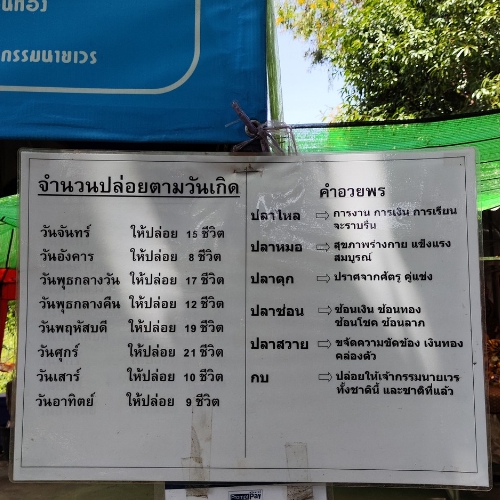 กรรมนายเวร
จำนวนปล่อยตามวันเกิด
วันจันทร์ ให้ปล่อย 15 ชีวิต
วันอังคาร ให้ปล่อย 8 ชีวิต
วันพุธกลางวัน ให้ปล่อย 17 ชีวิต
วันพุธกลางคืน ให้ปล่อย 12 ชีวิต
วันพฤหัสบดี ให้ปล่อย 19 ชีวิต
วันศุกร์ ให้ปล่อย 21 ชีวิต
วันเสาร์ ให้ปล่อย 10 ชีวิต
วันอาทิตย์ ให้ปล่อย 9 ชีวิต
คำอวยพร
ปลาไหล ⇨ การงาน การเงิน การเรียน
จะราบรื่น
ปลาหมอ ⇨ สุขภาพร่างกาย แข็งแรง
สมบูรณ์
ปลาดุก ⇨ ปราศจากศัตรู คู่แข่ง
ปลาช่อน ⇨ ช้อนเงิน ช้อนทอง
ช้อนโชค ช้อนลาภ
ปลาสวาย ⇨ ขจัดความขัดข้อง เงินทอง
คล่องตัว
กบ ⇨ ปล่อยให้เจ้ากรรมนายเวร
ทั้งชาตินี้ และชาติที่แล้ว